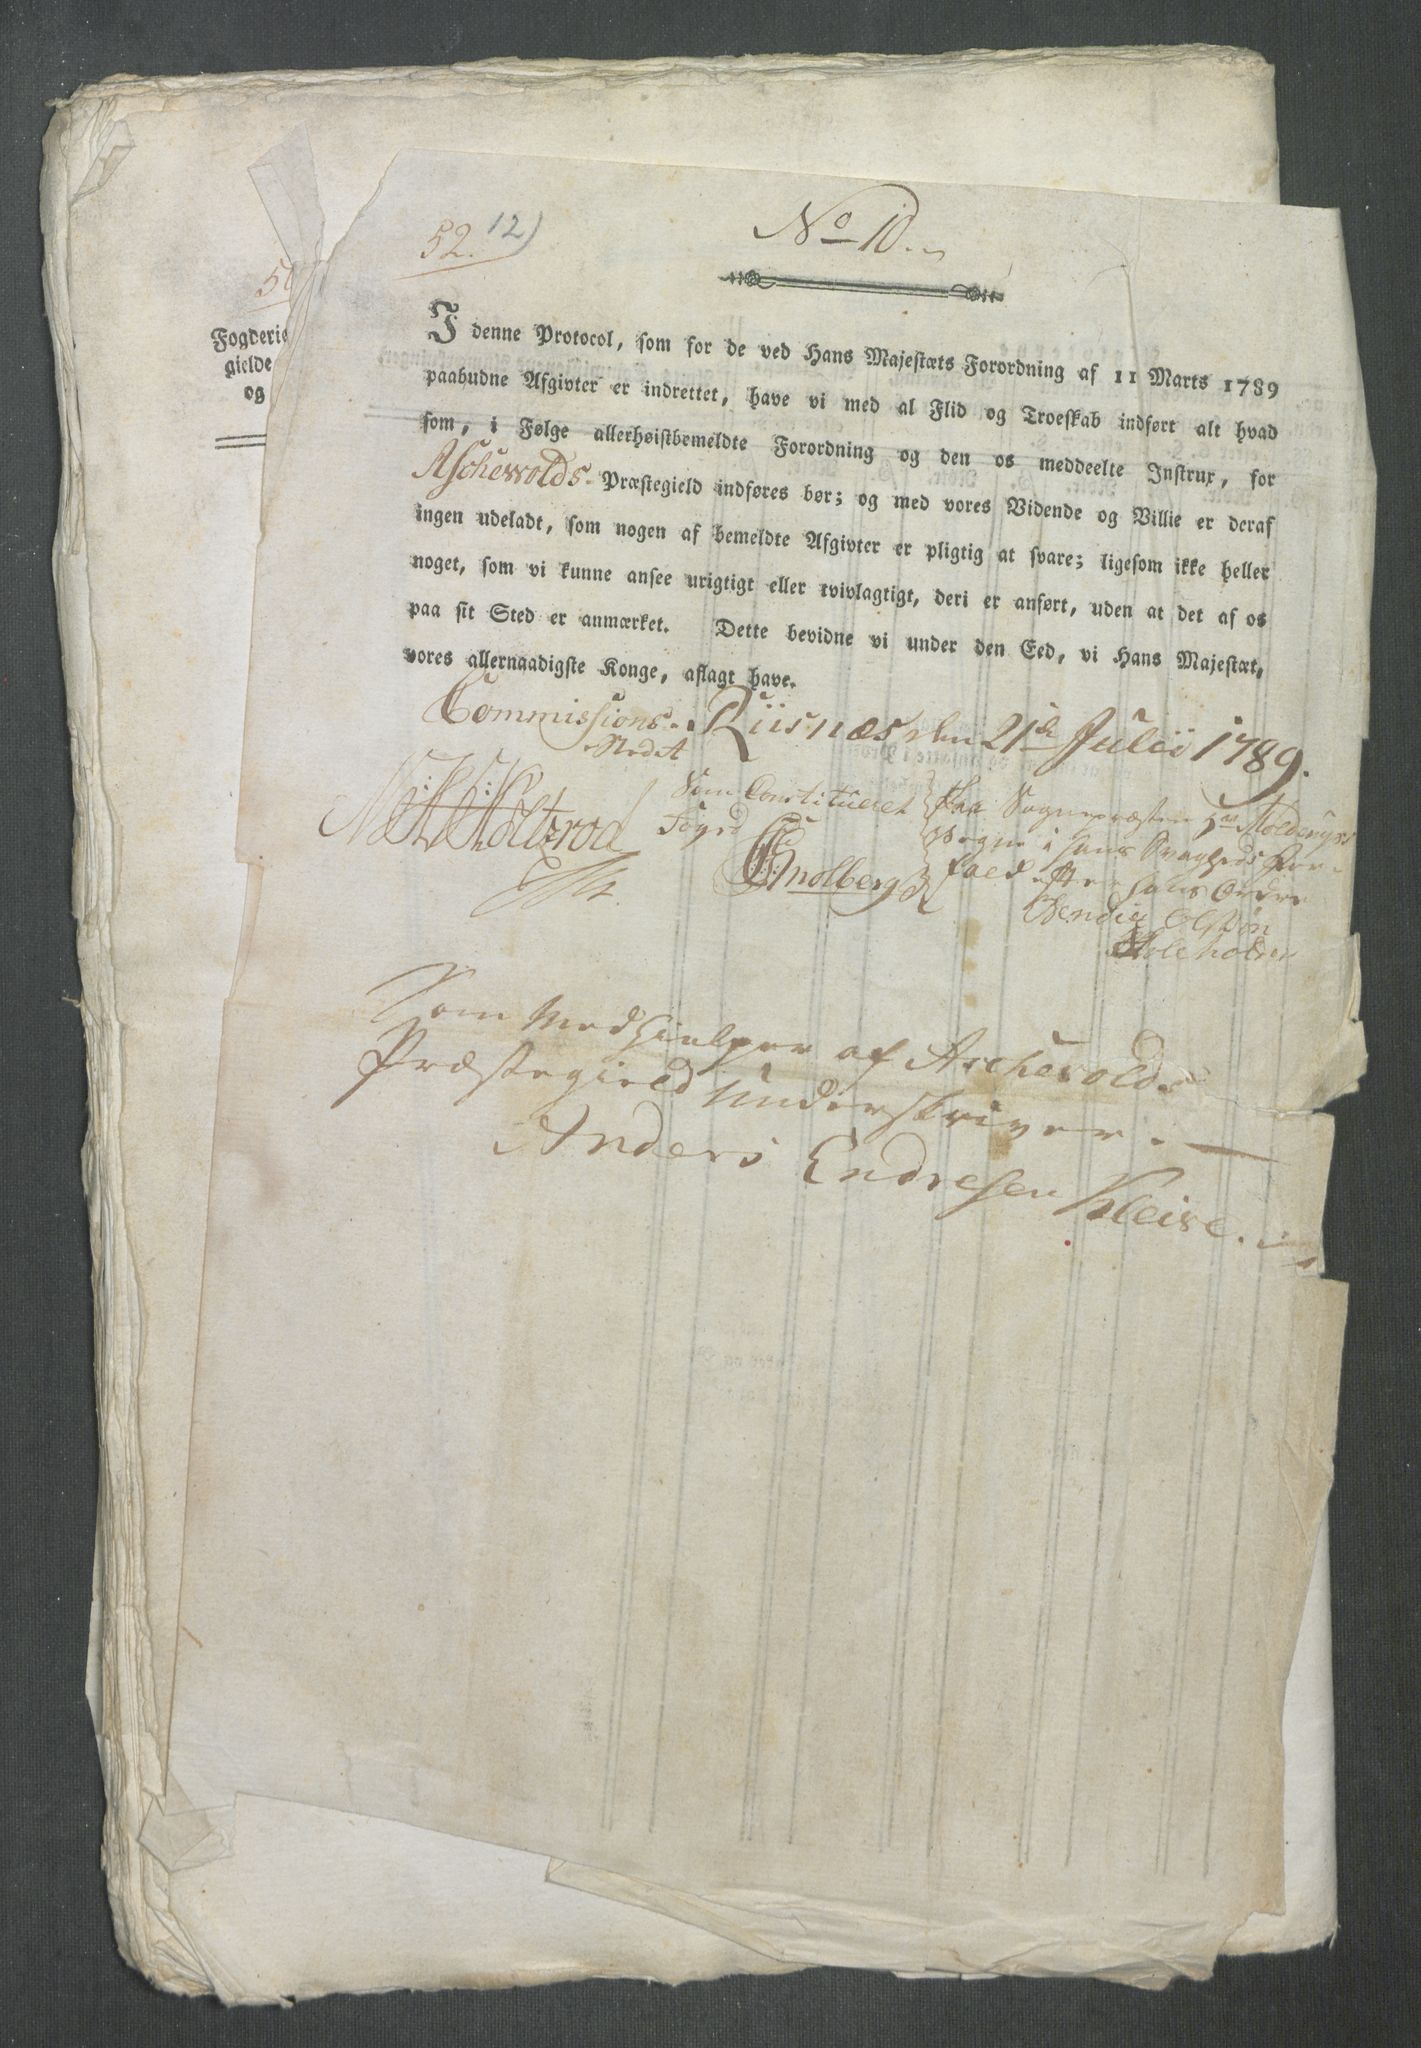 No 10.
52.
12)
5
Fogderie
gielde
og
I denne Protocol, som for de ved Hans Majestæts Forordning af 11 Marts 1789
paabudne Afgivter er indrettet, have vi med al Flid og Troeskab indført alt hvad
som, i Følge allerhøistbemeldte Forordning og den os meddeelte Instrux, for
Aschevolds Præstegield indføres bør; og med vores Vidende og Villie er deraf
ingen udeladt, som nogen af bemeldte Afgivter er pligtig at svare; ligesom ikke heller
noget, som vi kunne ansee urigtigt eller tvivlagtigt, deri er anført, uden at det af os
paa sit Sted er anmærket. Dette bevidne vi under den Eed, vi Hans Majestæt,
vores allernaadigste Konge, aflagt have.
Commissions- Riisnæs den 21de Julii 1789.
Stedet
Holtzrod
Som Constitueret
Foged
Smolberg
Paa Sognepræsten Hr Moldenhaers
Vegne i hans Svagheds For-
fald efter hans Ordre
Bendix Olsøn
Holeholm
Som Medhielper af Aschevolds
Præstegield Underskriver.
Anders Endresen Kleive.